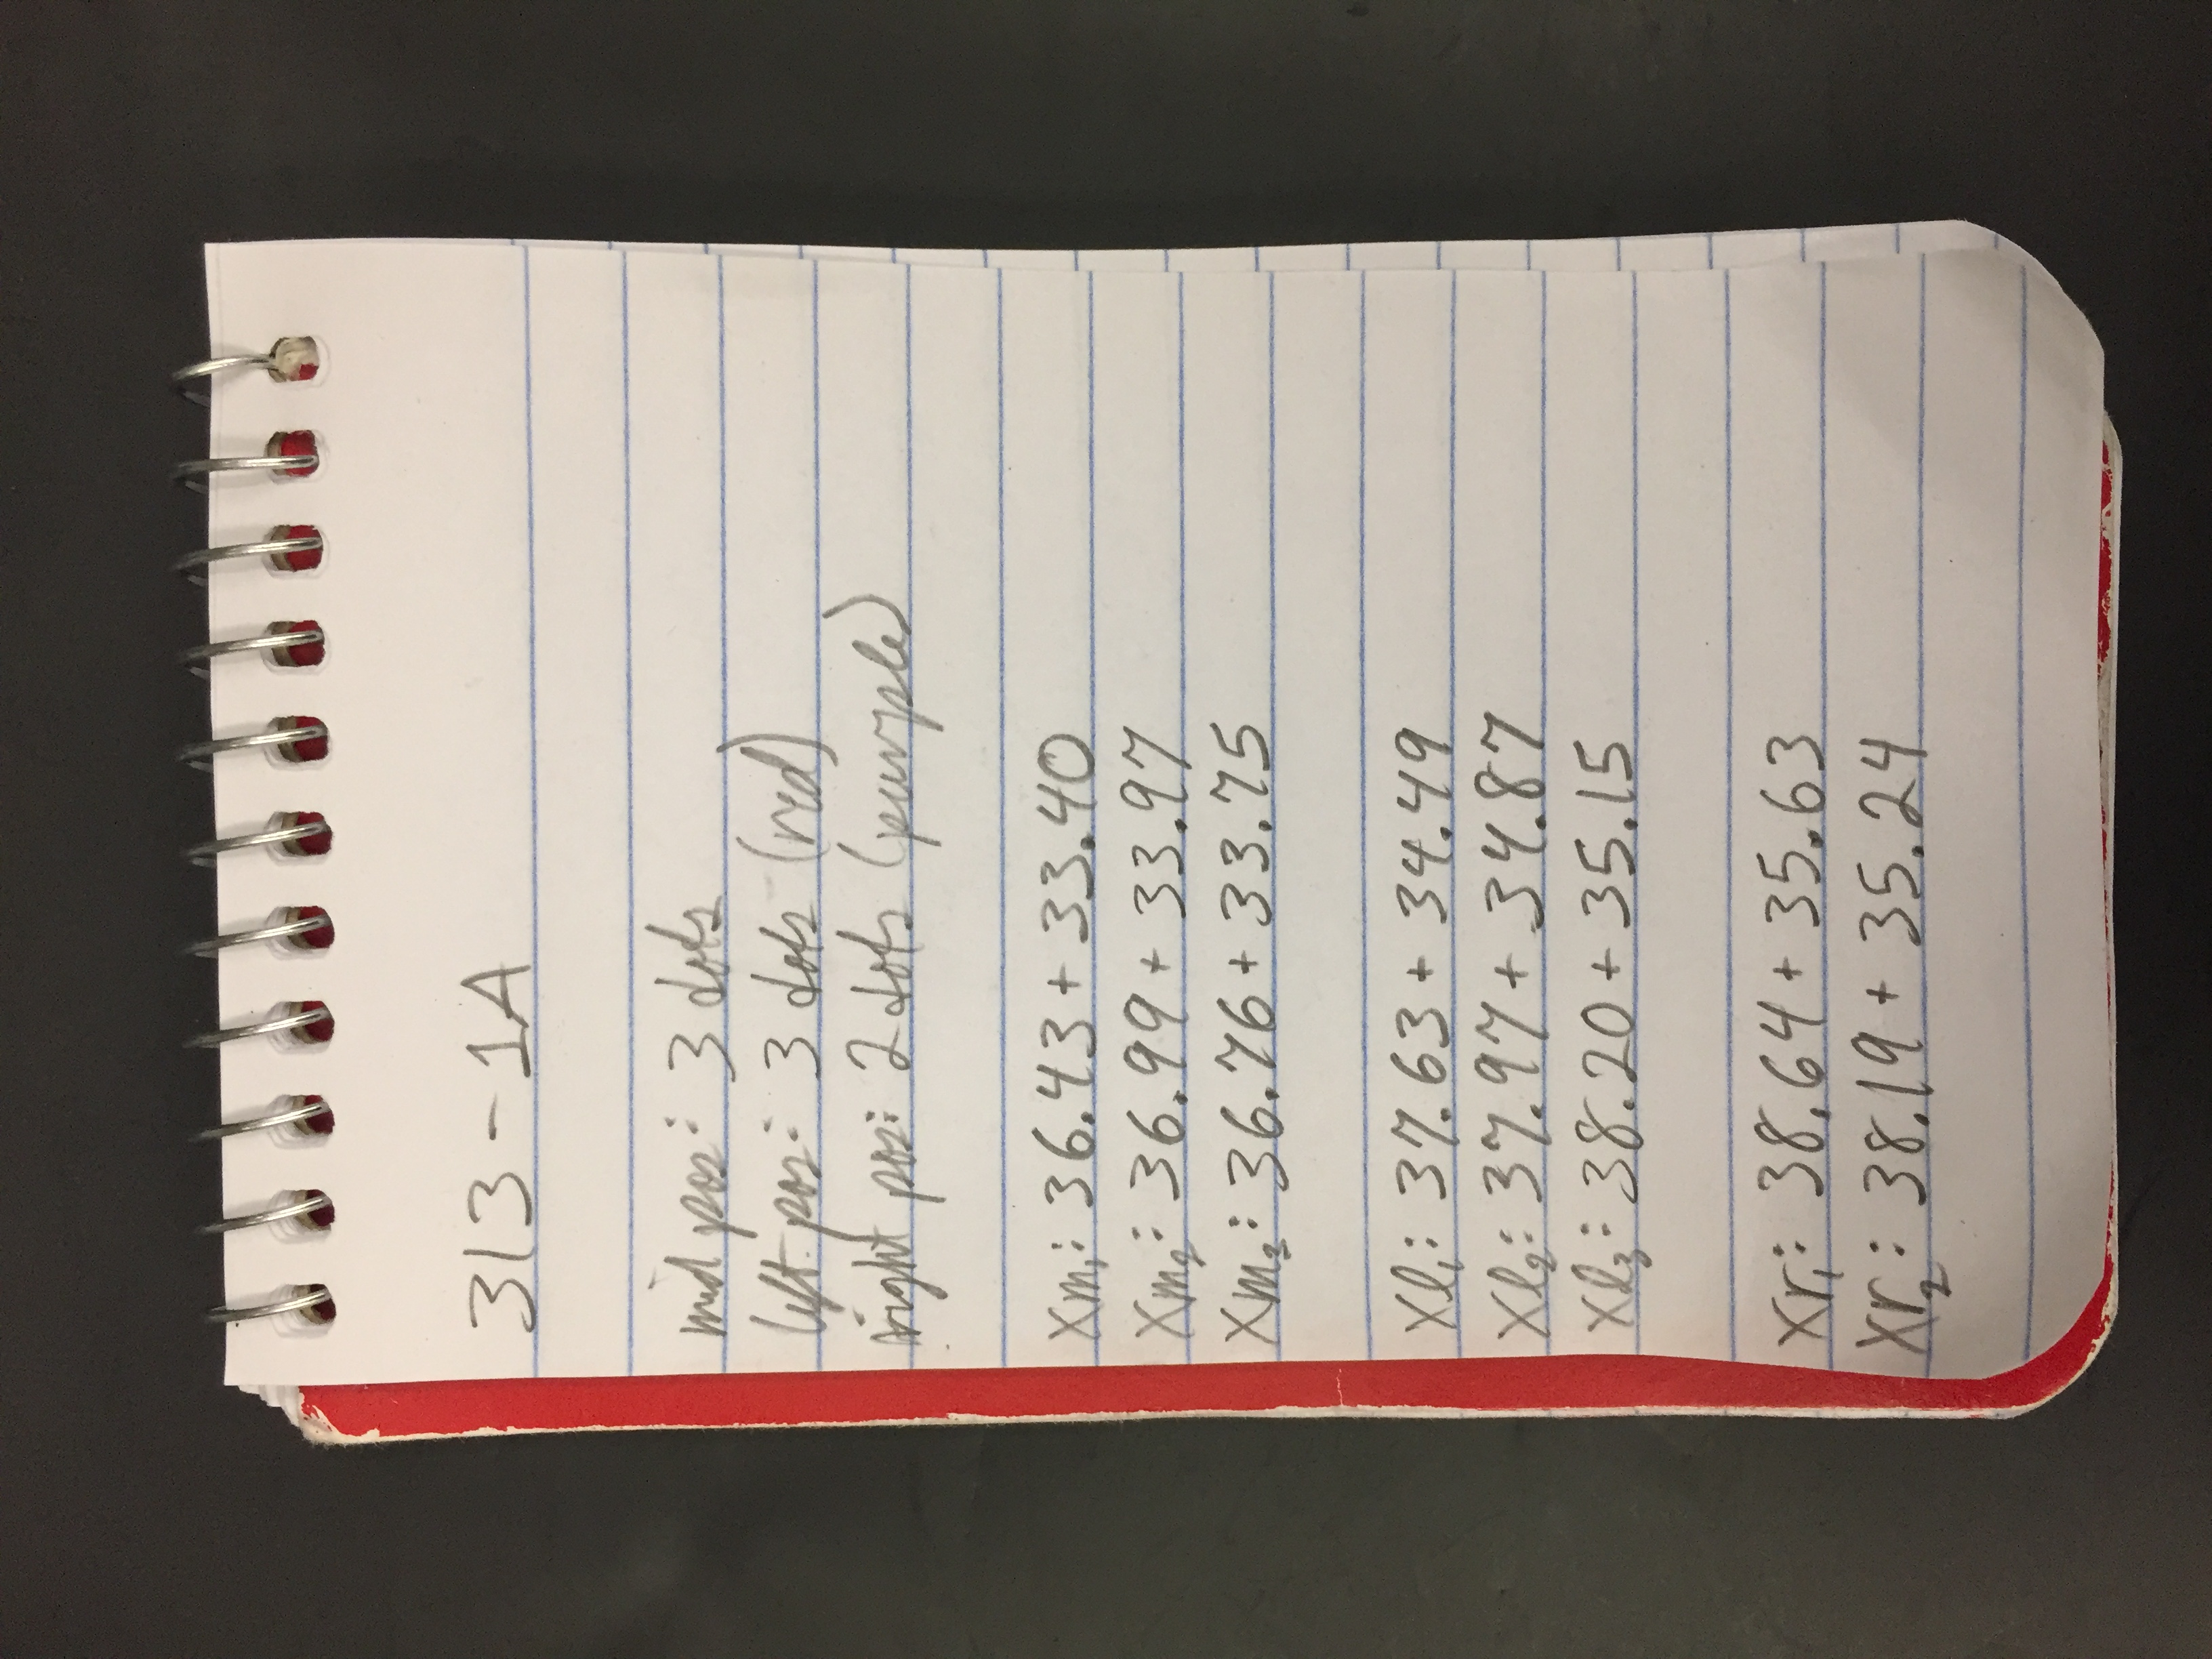 313-1A
mid pos: 3 dots
left pos: 3 dots (red)
right pos: 2 dots (purple)
xm₁: 36.43 + 33.40
xm₂: 36.99 + 33.97
xm₃: 36.76 + 33.75
xl₁: 37.63 + 34.49
xl₂: 37.97 + 34.87
xl₃: 38.20 + 35.15
xr₁: 38.64 + 35.63
xr₂: 38.19 + 35.24